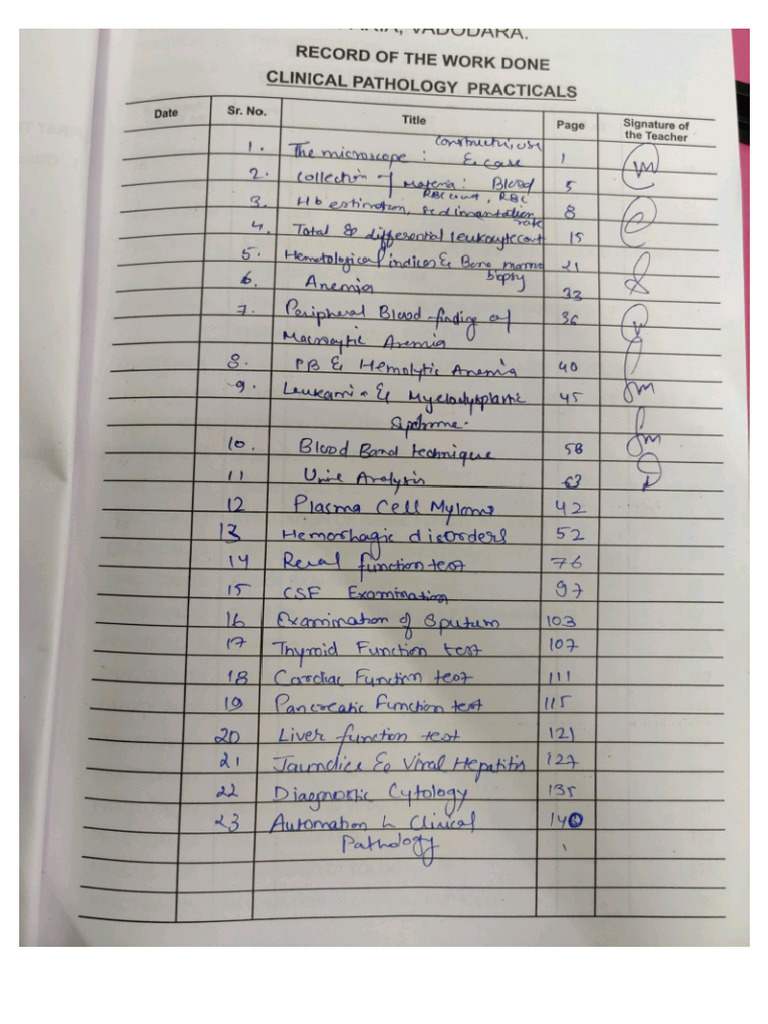 VADODARA.
RECORD OF THE WORK DONE
CLINICAL PATHOLOGY PRACTICALS
Date Sr. No. Title Page Signature of the Teacher
1. The microscope : Construction, use & care 1
2. Collection of Material : Blood 5
3. Hb estimation, RBC count, RBC Sedimantation rate 8
4. Total & differential leukocyte count 15
5. Hematological indices & Bone marrow biopsy 21
6. Anemia 33
7. Peripheral Blood finding of 36
Macrocytic Anemia
8. PB & Hemolytic Anemia 40
9. Leukami a & Myelodysplastic 45
10. Blood Band technique 58
11 Urine Analysis 63
12 Plasma Cell Myloma 42
13 Hemorhagic disorders 52
14 Renal function test 76
15 CSF Examination 97
16 Examination of Sputum 103
17 Thyroid Function test 107
18 Cardiac Function test 111
19 Pancreatic Function test 115
20 Liver function test 121
21 Jaundice & Viral Hepatitis 127
22 Diagnostic Cytology 135
23 Automation in Clinical 140
Pathology